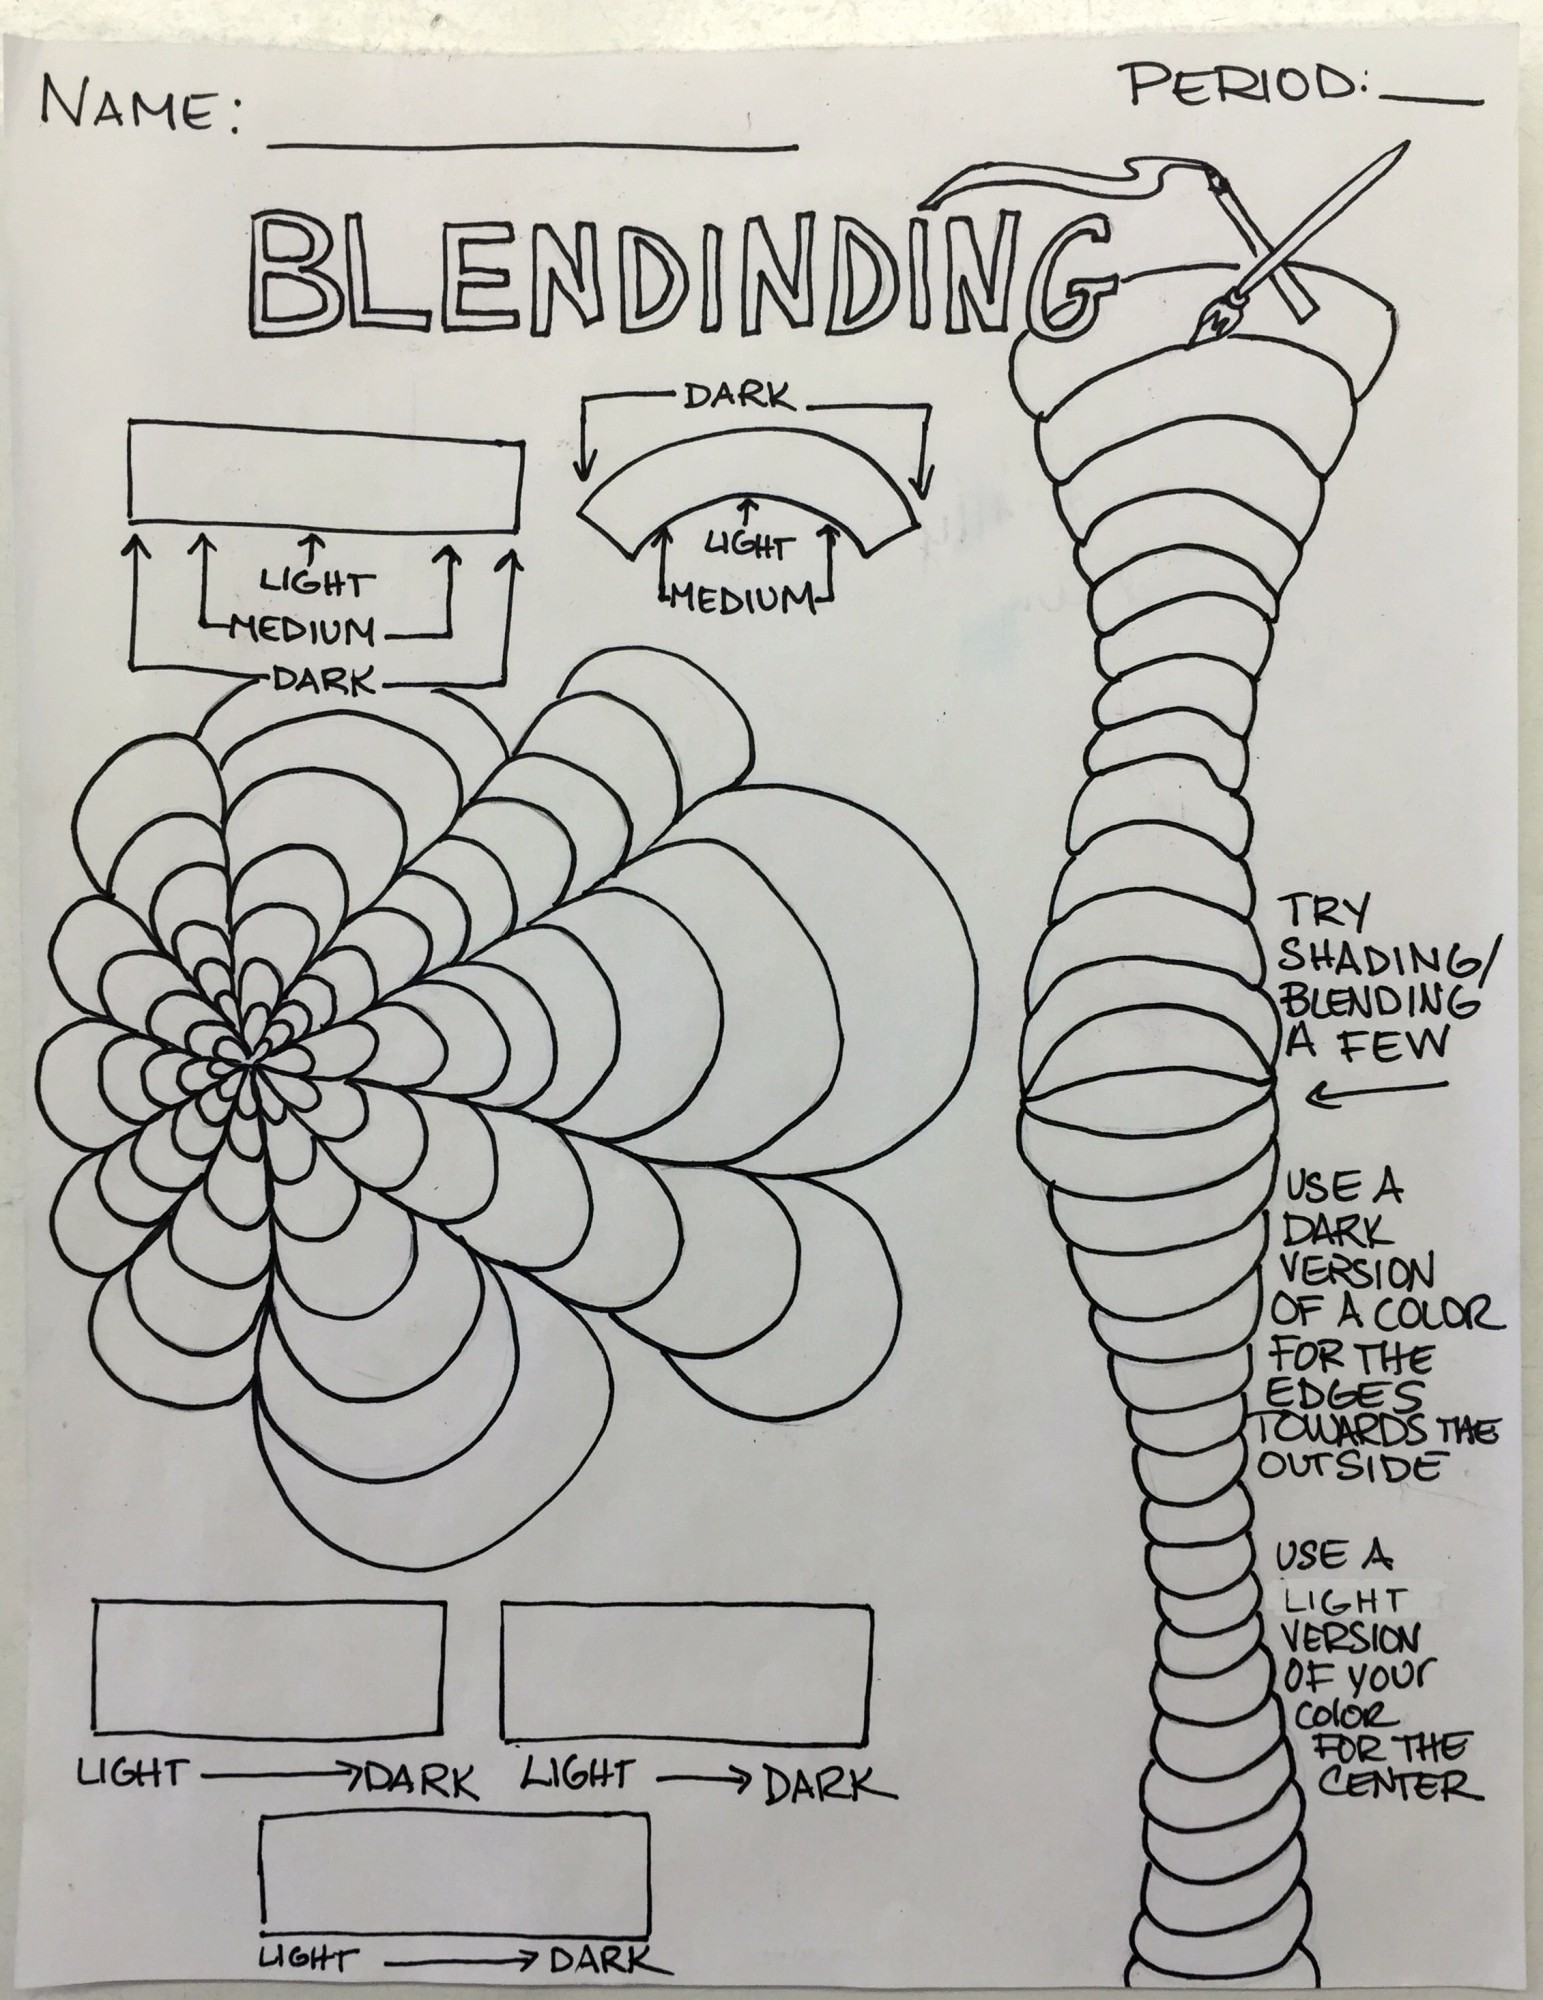 NAME: ________ PERIOD: __
BLENDINDING
DARK
LIGHT
MEDIUM
DARK
LIGHT
MEDIUM
TRY
SHADING/
BLENDING
A FEW
USE A
DARK
VERSION
OF A COLOR
FOR THE
EDGES
TOWARDS THE
OUTSIDE
USE A
LIGHT
VERSION
OF YOUR
COLOR
FOR THE
CENTER
LIGHT → DARK
LIGHT → DARK
LIGHT → DARK